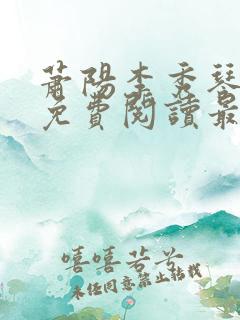 蕭陽李秀琴
免費閱讀最
嘻嘻芳芳
未經同意禁止轉載